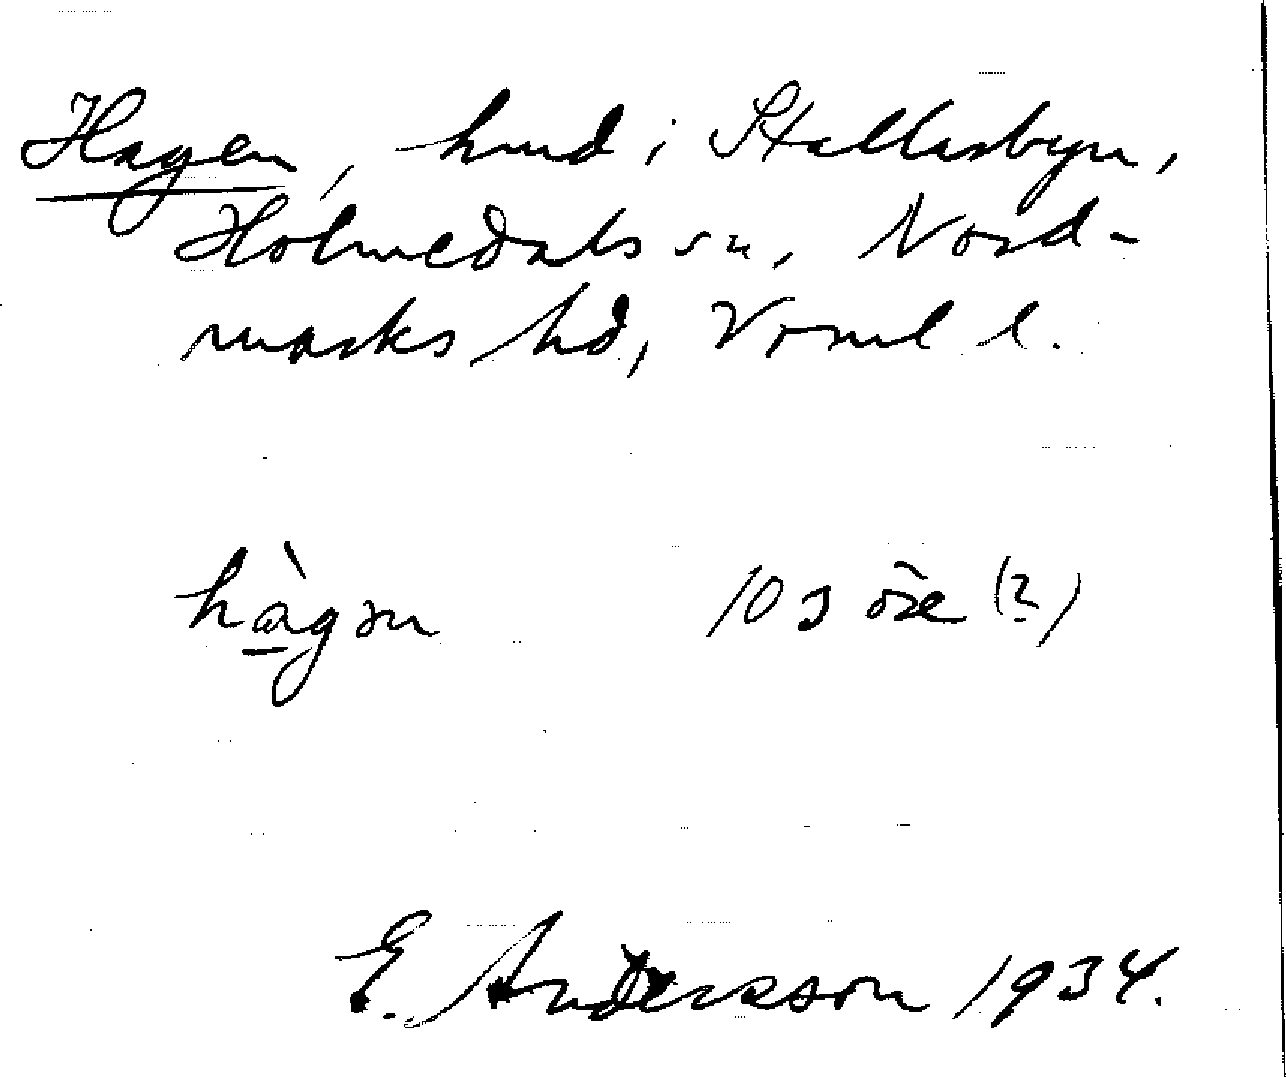 Hagen, hmd i Stallarbyn,
Holmedals sn, Nord-
marks hd, Vrml l.
hàgən
E. Andersson 1934.